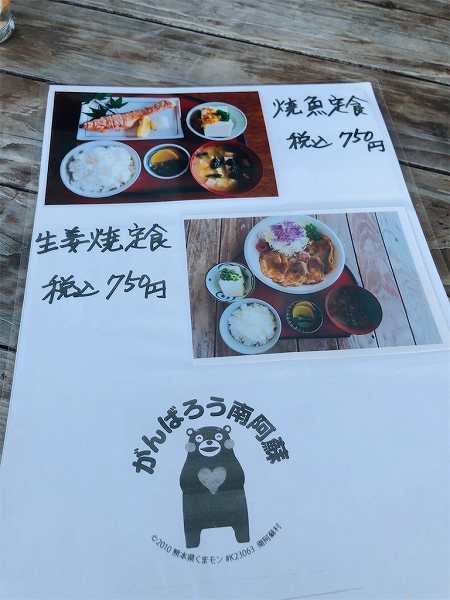 焼魚定食
税込 750円
生姜焼定食
税込 750円
がんばろう南阿蘇
©2010 熊本県くまモン #K23063 南阿蘇村